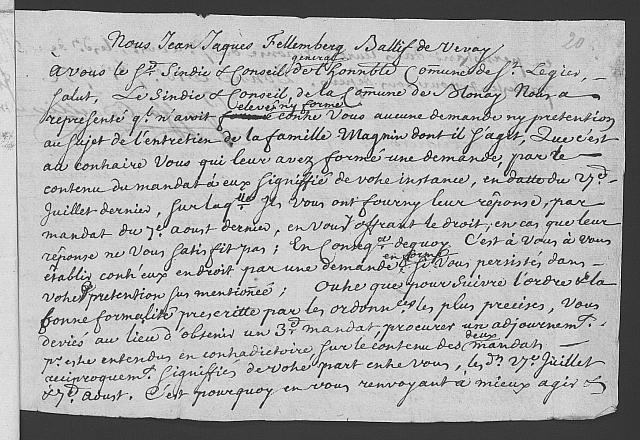 Nous Jean Jaques Fellemberg Ballif de Vevay 20
à vous le Sr. Sindic & Conseil general de l'honnble Comune de St. Legier,
Salut, Le Sindic & Conseil de la Comune de Blonay Nous a
représenté qu'il n'avoit elevé ny formé contre Vous aucune demande ny pretention
au sujet de l'entretien de la famille Magnin dont il s'agit, Que c'est
au contraire Vous qui leur avez formé une demande, par le
contenu du mandat à eux signiffié de votre instance, en datte du 27e.
Juillet dernier, sur laqlle ils vous ont fourny leur réponse, par
mandat du 7e. aoust dernier, en Vous offrant le droit, en cas que leur
réponse ne Vous satisfit pas; En Conseqce dequoy C'est à Vous à vous
établir contr'eux en droit par une demande en forme si Vous persistés dans
votre pretention sus mentionée; Outre que pour suivre l'ordre & la
bonne formalité prescritte par les ordonnces les plus precises, Vous
deviés au lieu d'obtenir un 3e. mandat procurer un adjournemt.
pr. estre entendus en contradictoire, sur le contenu des deux mandats
reciproquemt. signiffiés de votre part entre vous, les dts 27e. Juillet
& 7e. aoust. C'est pourquoy en vous renvoyant à mieux agir &